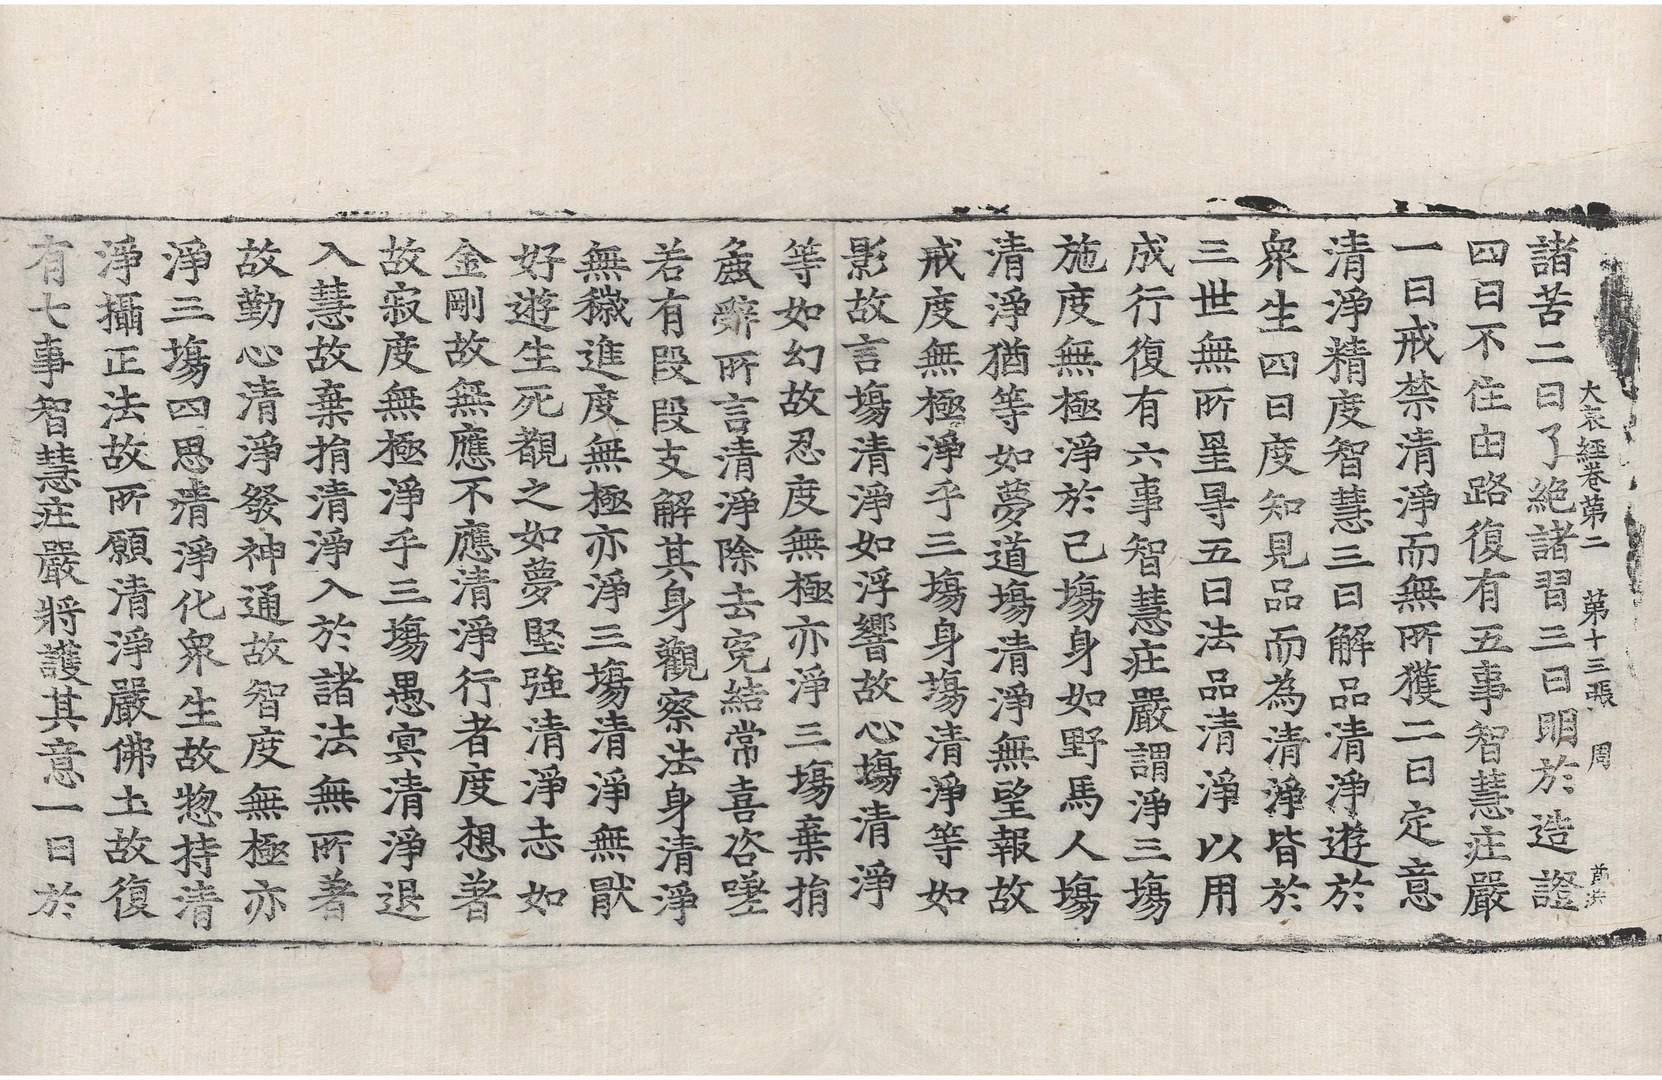 大哀經卷第二　第十三張　周
諸苦二曰了絶諸習三曰明於造證
四曰不住由路復有五事智慧莊嚴
一曰戒禁清淨而無所獲二曰定意
清淨精度智慧三曰解品清淨遊於
衆生四曰度知見品而為清淨皆於
三世無所罣㝵五曰法品清淨以用
成行復有六事智慧莊嚴謂淨三塲
施度無極淨於己塲身如野馬人塲
清淨猶等如夢道塲清淨無望報故
戒度無極淨乎三塲身塲清淨等如
影故言塲清淨如浮響故心塲清淨
等如幻故忍度無極亦淨三塲棄捐
麁辭所言清淨除去寃結常喜咨嗟
若有段段支解其身觀察法身清淨
無穢進度無極亦淨三塲清淨無猒
好遊生死觀之如夢堅強清淨志如
金剛故無應不應清淨行者度想著
故寂度無極淨乎三塲愚冥清淨退
入慧故棄捐清淨入於諸法無所著
故勤心清淨發神通故智度無極亦
淨三塲四恩清淨化衆生故惣持清
淨攝正法故所願清淨嚴佛土故復
有七事智慧莊嚴將護其意一曰於